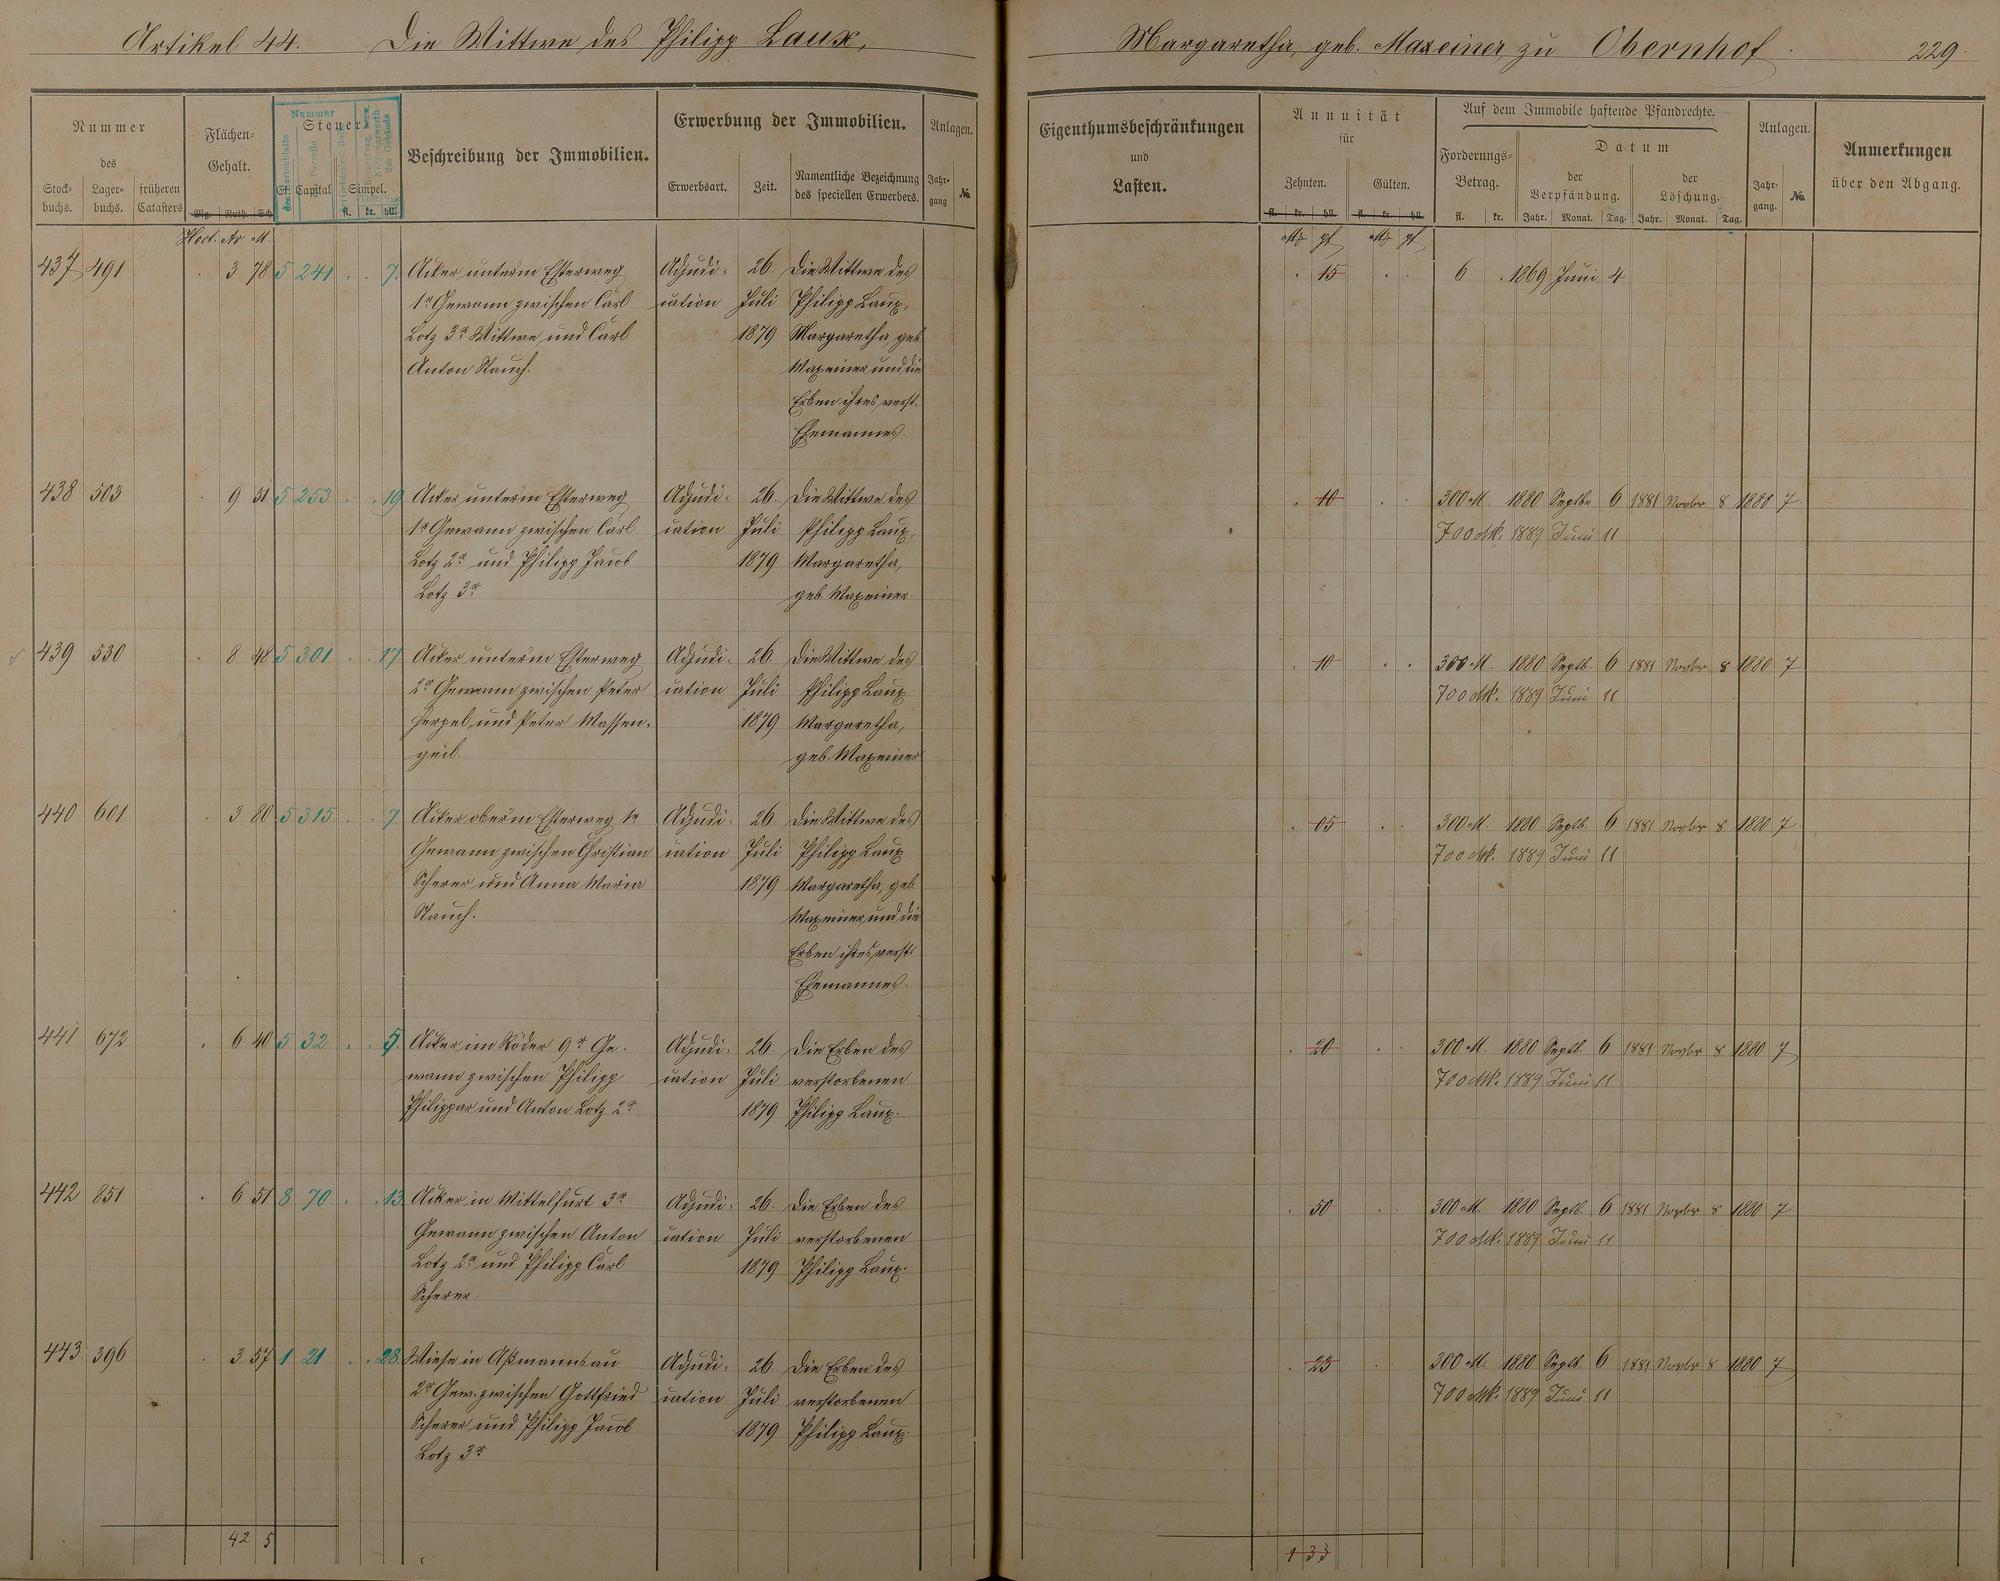 Artikel 44. Die Wittwe des Philipp Laux,
Margaretha, geb. Maxeiner, zu Obernhof. 229.
Nummer
des
Stock-
buchs.
Lager-
buchs.
früheren
Catasters
Flächen-
Gehalt.
Mg. Ruth. Sch.
Hect. Ar M.
Nummer
Steuer
Cl. Capital Simpel.
fl. kr. hll.
Beschreibung der Immobilien.
Erwerbung der Immobilien.
Erwerbsart. Zeit.
Namentliche Bezeichnung
des speciellen Erwerbers.
Anlagen.
Jahr-
gang
№
Eigenthumsbeschränkungen
und
Lasten.
Annuität
für
Zehnten. Gülten.
fl. kr. hll. fl. kr. hll.
Auf dem Immobile haftende Pfandrechte.
Forderungs-
Betrag.
fl. kr.
Datum
der
Verpfändung.
Jahr. Monat. Tag.
der
Löschung.
Jahr. Monat. Tag.
Anlagen.
Jahr-
gang.
№
Anmerkungen
über den Abgang.
437 491 3 78 5 241 7. Acker unterm Esterweg Adjudi- 26. Die Wittwe des 15 6 1869 Juni 4
1r Gewann zwischen Carl cation Juli Philipp Laux,
Lotz 3r Wittwe und Carl 1879 Margaretha geb.
Anton Rauch. Maxeiner und die
Erben ihres verst.
Ehemannes.
438 503 9 51 5 253 19 Acker unterm Esterweg Adjudi- 26. Die Wittwe des 10 300 M. 1880 Septbr 6 1881 Novbr 8 1880 7
1r Gewann zwischen Carl cation Juli Philipp Laux, 700 Mk. 1889 Juni 11
Lotz 2r und Philipp Jacob 1879 Margaretha,
Lotz 3r geb. Maxeiner.
439 530 8 48 5 301 17 Acker unterm Esterweg Adjudi- 26. Die Wittwe des 10 300 M. 1880 Septb. 6 1881 Novbr 8 1880 7
2r Gewann zwischen Peter cation Juli Philipp Laux 700 Mk. 1889 Juni 11
Herpel und Peter Massen- 1879 Margaretha,
geil. geb. Maxeiner
440 601 3 80 5 315 7. Acker oberm Esterweg 1r Adjudi- 26. Die Wittwe des 05 300 M. 1880 Septb. 6 1881 Novbr 8 1880 7
Gewann zwischen Christian cation Juli Philipp Laux 700 Mk. 1889 Juni 11
Scherer und Anna Maria 1879 Margaretha, geb.
Rauch. Maxeiner und die
Erben ihres verst.
Ehemannes.
441 672 6 40 5 32 5. Acker im Röder 9r Ge- Adjudi- 26. Die Erben des 20 300 M. 1880 Septb. 6 1881 Novbr 8 1880 7
wann zwischen Philipp cation Juli verstorbenen 700 Mk. 1889 Juni 11
Philippar und Anton Lotz 2r 1879 Philipp Laux.
442 851 6 51 8 70 13 Acker in Mittelfurt 3r Adjudi- 26. Die Erben des 50 300 M. 1880 Septb. 6 1881 Novbr 8 1880 7
Gewann zwischen Anton cation Juli verstorbenen 700 Mk. 1889 Juni 11
Lotz 2r und Philipp Carl 1879 Philipp Laux.
Scherer.
443 396 3 57 1 21 28 Wiese in Aßmannsau Adjudi- 26. Die Erben des 23 300 M. 1880 Septb. 6 1881 Novbr 8 1880 7
2r Gew. zwischen Gottfried cation Juli verstorbenen 700 Mk. 1889 Juni 11
Scherer und Philipp Jacob 1879 Philipp Laux.
Lotz 3r
42 5
1 33